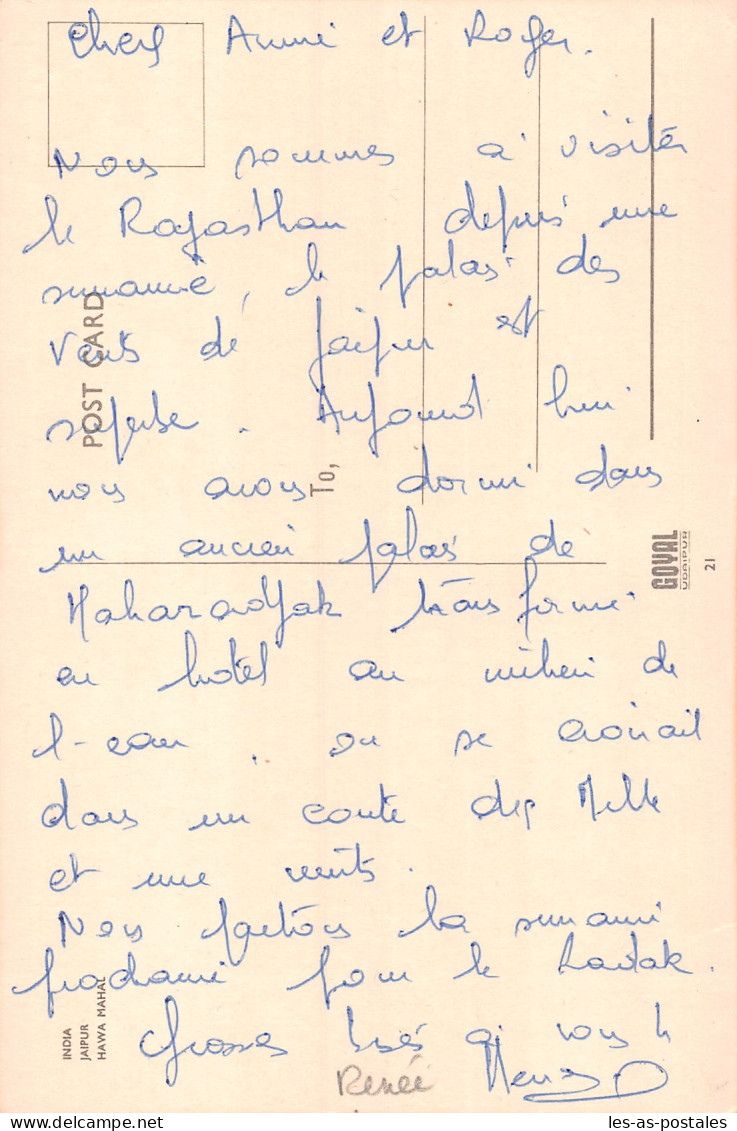 Chers Anni et Roger.
Nous sommes à visiter
le Rajasthan depuis une
semaine, le palais des
vents de Jaipur est
superbe. Aujourd'hui
nous avons dormi dans
un ancien palais de
Maharadjah transformé
en hotel au milieu de
l'eau. on se croirait
dans un conte des Mille
et une nuits.
Nous partons la semaine
prochaine pour le Ladak.
Grosses bises à vous
Renée
POST CARD
To,
GOYAL
UDAIPUR
21
INDIA
JAIPUR
HAWA MAHAL
les-as-postales